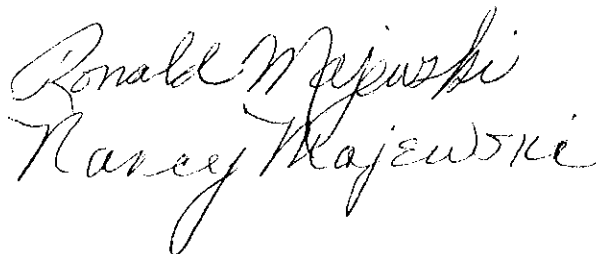 Ronald Majewski
Nancy Majewski